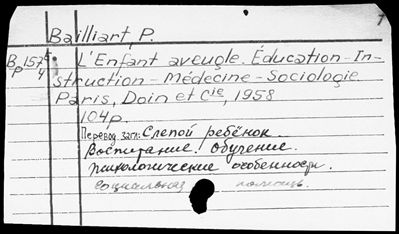 Bailliart, P.
B 157
p 4
L'Enfant aveugle. Éducation-In-
struction-Médecine-Sociologie
Paris, Doin et Cie, 1958
104p.
Перевод загл: Слепой ребёнок.
Воспитание. Обучение.
Психологические особенности.
Социальная помощь.